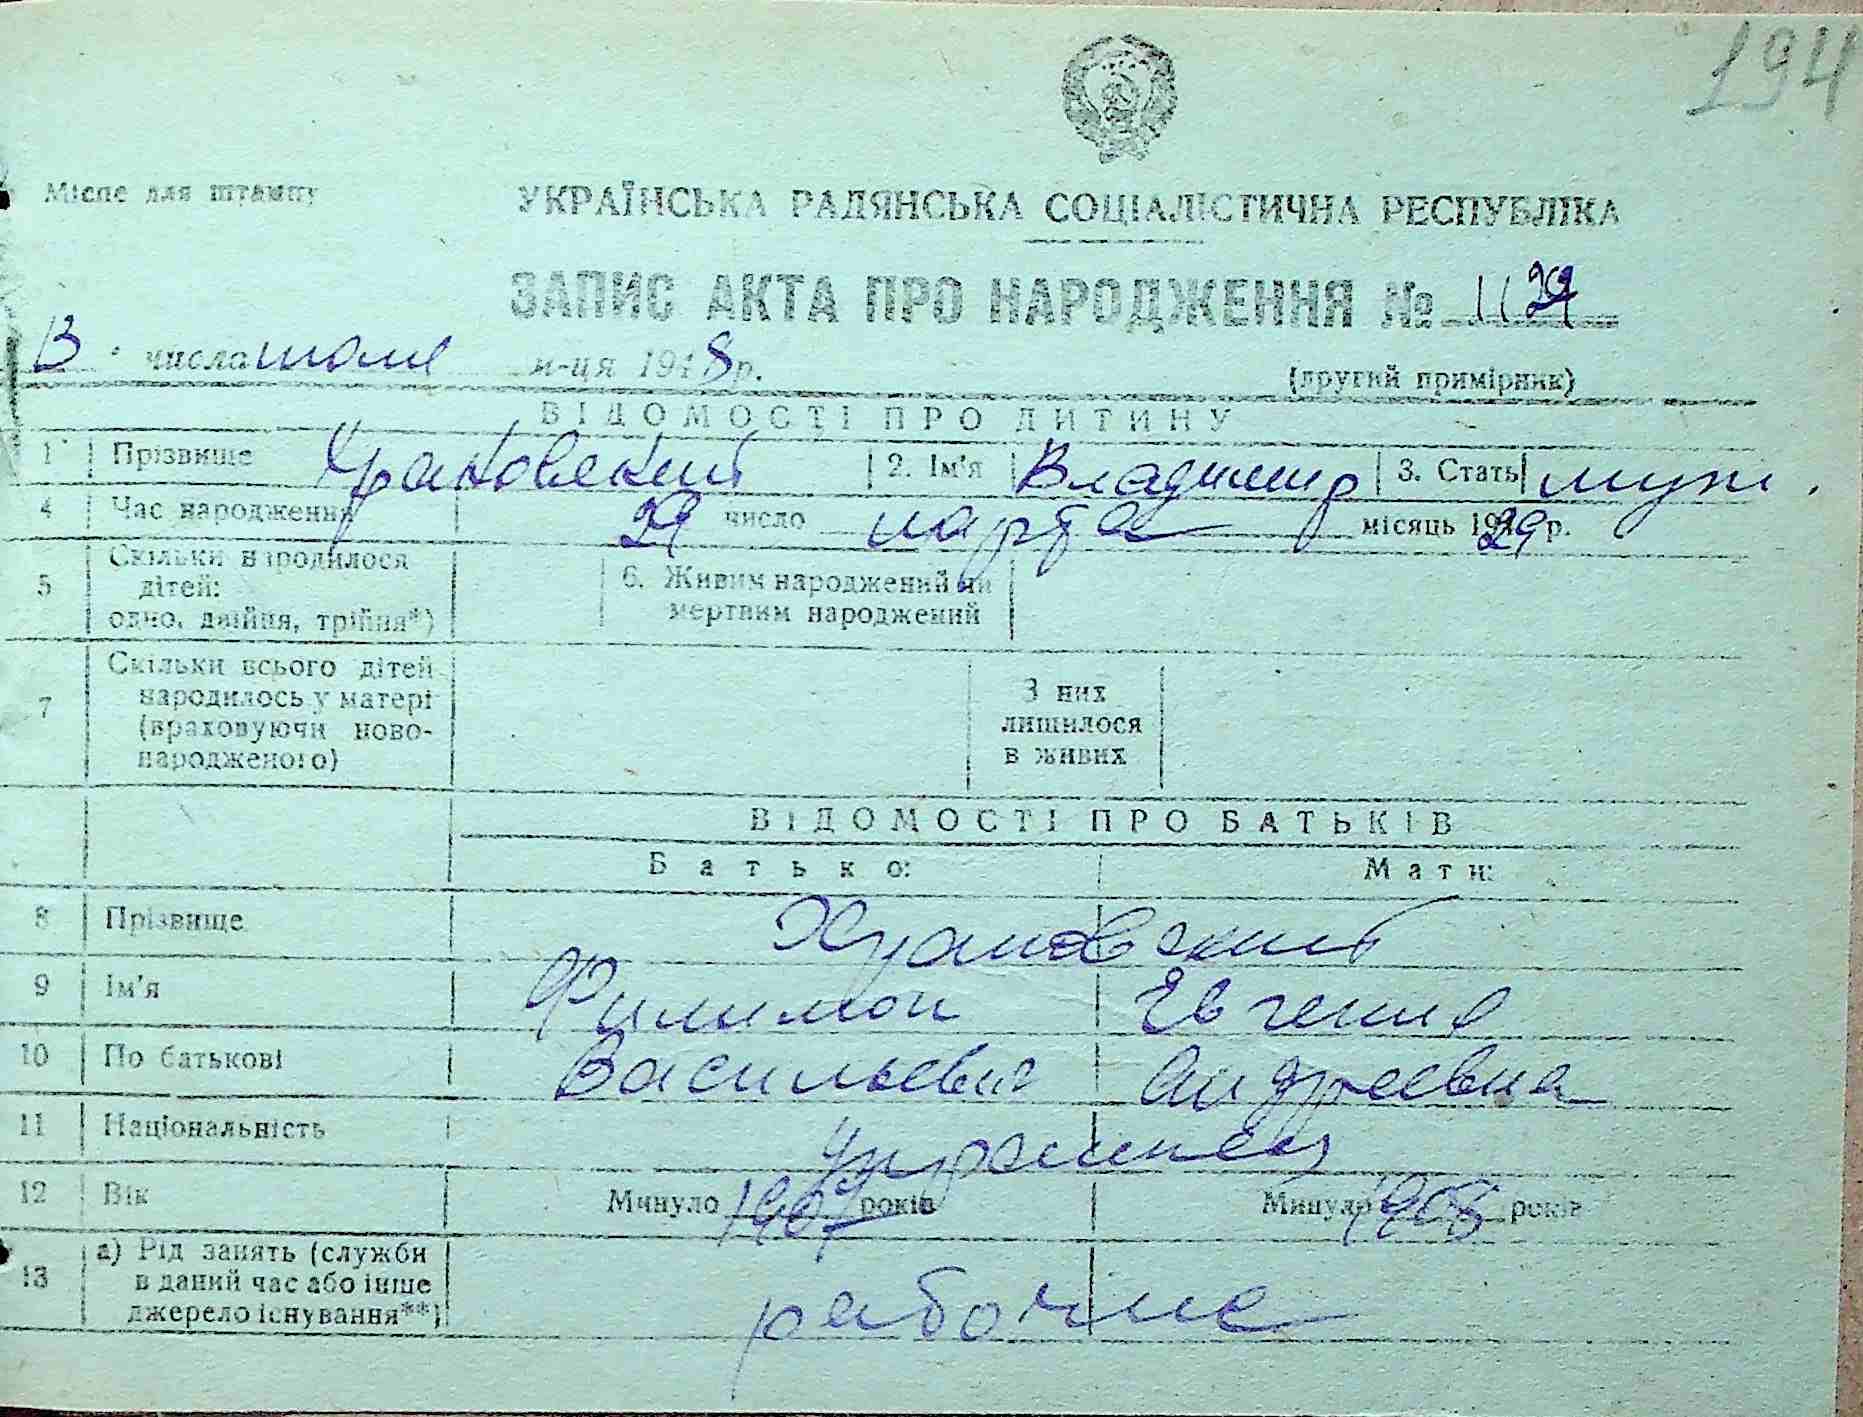 194
Місце для штампу
УКРАЇНСЬКА РАДЯНСЬКА СОЦІАЛІСТИЧНА РЕСПУБЛІКА
ЗАПИС АКТА ПРО НАРОДЖЕННЯ № 1129
13 числа июля м-ця 1948 р.
(другий примірник)
ВІДОМОСТІ ПРО ДИТИНУ
1 Прізвище 2. Ім'я Владимир 3. Стать муж.
4 Час народження 29 число марта місяць 1929 р.
5 Скільки народилося
дітей:
одно, двійня, трійня*)
6. Живим народжений чи
мертвим народжений
7 Скільки всього дітей
народилось у матері
(враховуючи ново-
народженого)
З них
лишилося
в живих
ВІДОМОСТІ ПРО БАТЬКІВ
Батько: Мати:
8 Прізвище
9 Ім'я Филимон Евгения
10 По батькові Васильевич Андреевна
11 Національність украинец
12 Вік Минуло 1907 років Минуло 1908 років
13 а) Рід занять (служби
в даний час або інше
джерело існування**)
рабочие